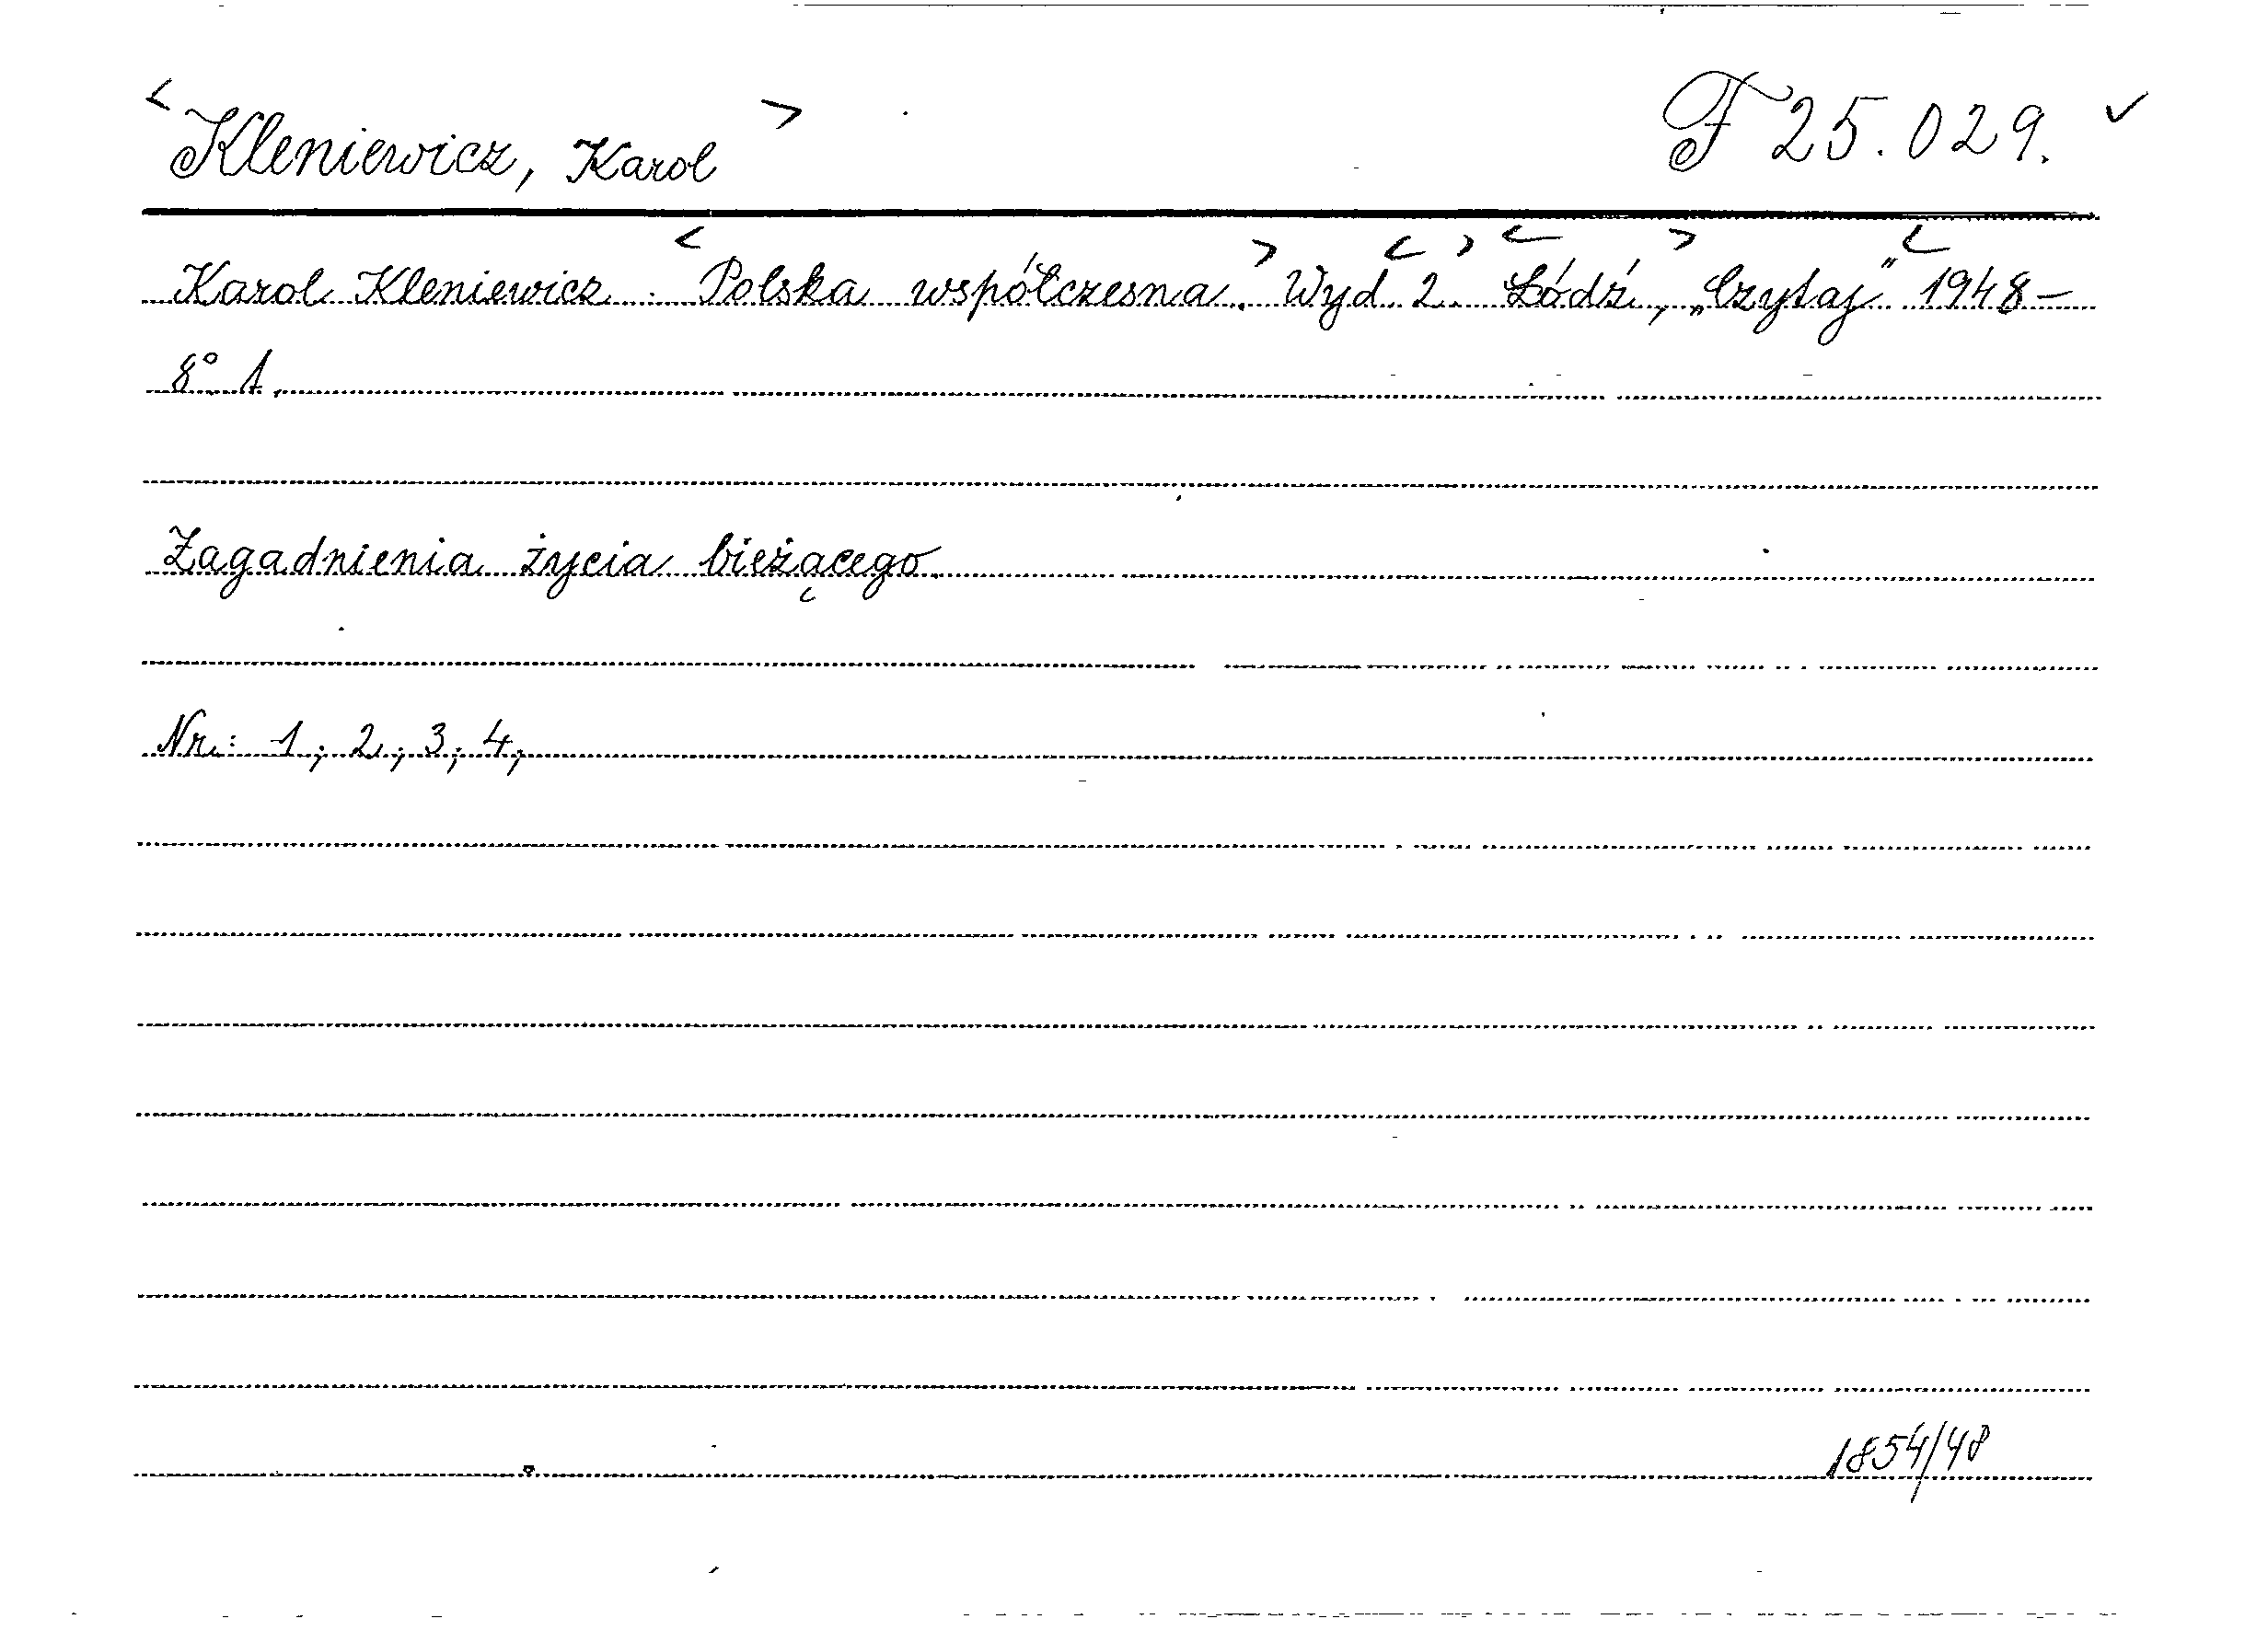 <Kleniewicz, Karol> F 25.029. ✓
Karol Kleniewicz. <Polska współczesna.> Wyd. <2.> <Łódź,> „Czytaj" <1948 –
8° 1.
Zagadnienia życia bieżącego.
Nr.: 1; 2; 3; 4;
1854/48